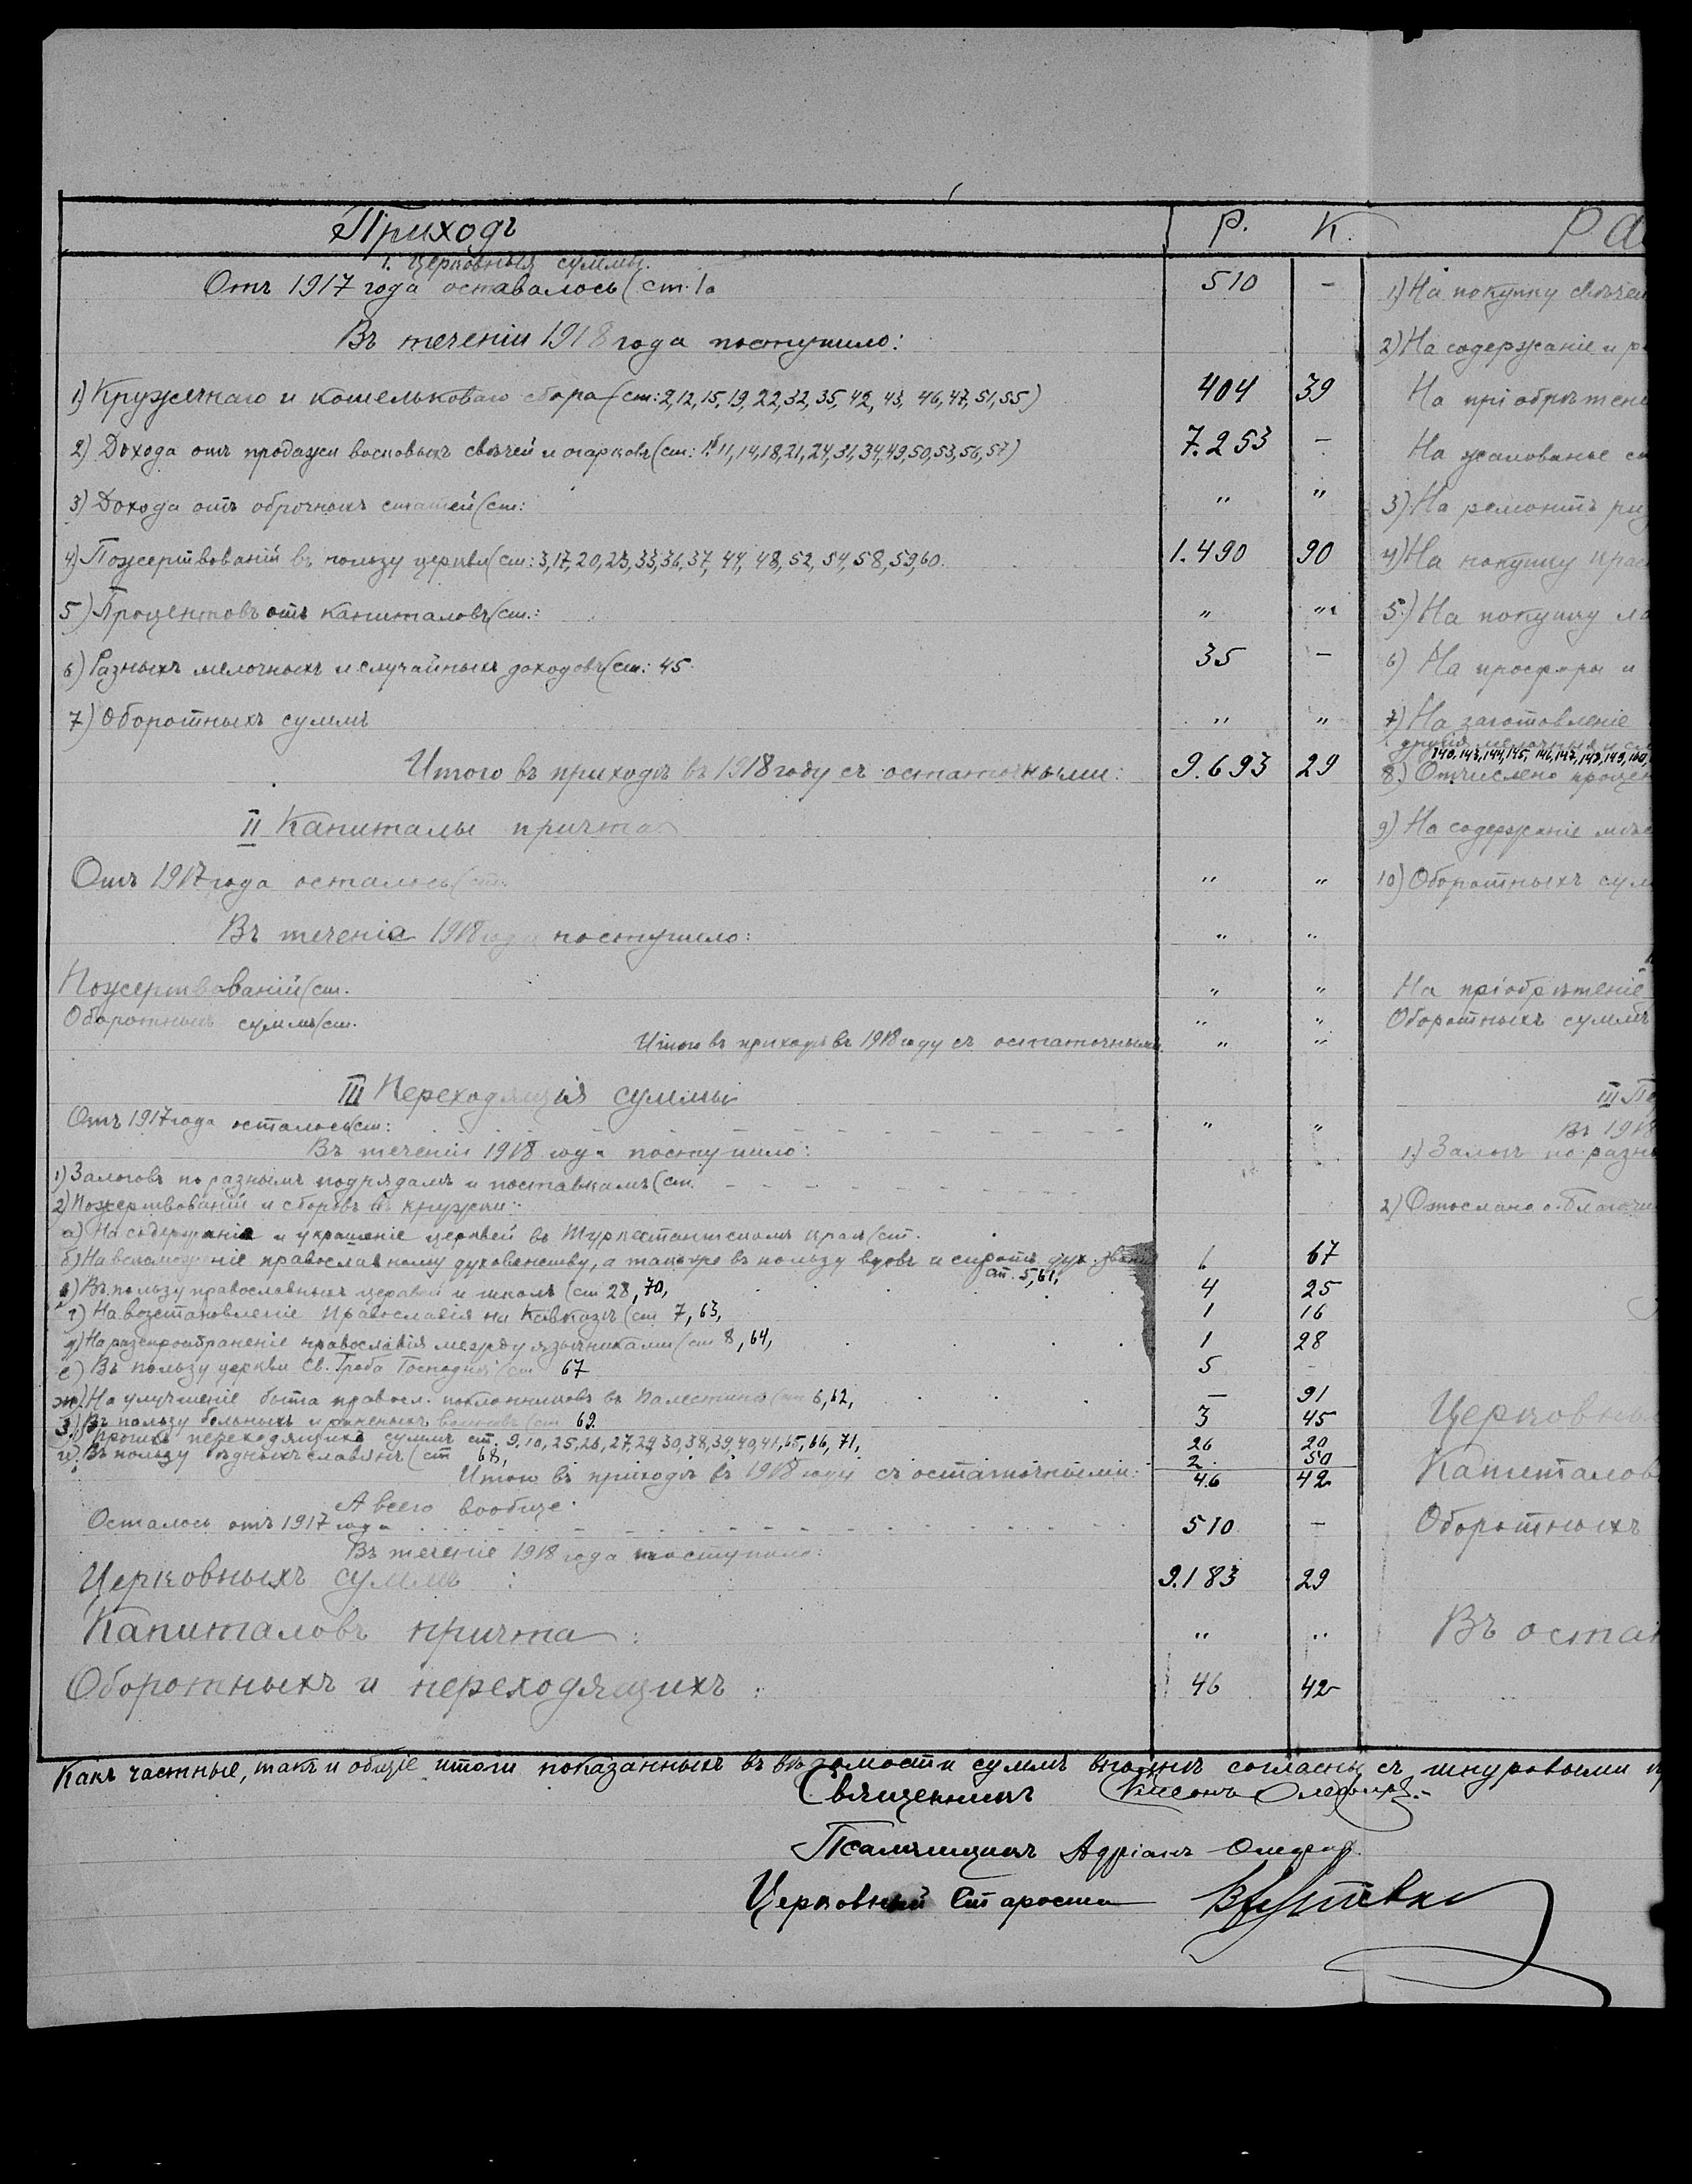 Приходъ Р. К. РА
1. Церковныя суммы.
Отъ 1917 года оставалось (ст. 1а 510 –
Въ теченіи 1918 года поступило:
1) Кружечнаго и кошельковаго сбора (ст: 2,12,15,19,22,32,35,42,43,46,47,51,55) 404 39
2) Дохода отъ продажи восковыхъ свѣчей и огарковъ (ст: 1б 11,14,18,21,24,31,34,49,50,53,56,57) 7.253 –
3) Дохода отъ оброчныхъ статей (ст: " "
4) Пожертвованій въ пользу церкви (ст: 3,17,20,23,33,36,37,44,48,52,54,58,59,60. 1.490 90
5) Процентовъ отъ капиталовъ (ст.: " "
6) Разныхъ мелочныхъ и случайныхъ доходовъ (ст.: 45. 35 –
7) Оборотныхъ суммъ " "
Итого въ приходѣ въ 1918 году съ остаточными: 9.693 29
II Капиталы причта
Отъ 1917 года осталось (ст. " "
Въ теченіе 1918 года поступило: " "
Пожертвованій (ст. " "
Оборотныхъ суммъ (ст. " "
Итого въ приходѣ въ 1918 году съ остаточными " "
III Переходящія суммы
Отъ 1917 года осталось (ст: " "
Въ теченіи 1918 года поступило:
1) Залоговъ по разнымъ подрядамъ и поставкамъ (ст.
2) Пожертвованій и сборовъ въ кружки:
а) На содержаніе и украшеніе церквей въ Туркестанскомъ краѣ (ст.
б) На вспоможеніе православному духовенству, а также въ пользу вдовъ и сиротъ дух. званія 1 67
ст. 5,61,
в) Въ пользу православныхъ церквей и школъ (ст 28, 70, 4 25
г) На возстановленіе Православія на Кавказѣ (ст 7, 63, 1 16
д) На распространеніе православія между язычниками (ст 8, 64, 1 28
е) Въ пользу церкви Св. Гроба Господня (ст 67 5 –
ж) На улучшеніе быта правосл. поклонниковъ въ Палестинѣ (ст 6, 62, – 91
з) Въ пользу больныхъ и раненыхъ воиновъ (ст 69. 3 45
Прочихъ переходящихъ суммъ ст. 9.10,25,26,27,29,30,38,39,40,41,65,66,71, 26 20
и) Въ пользу бѣдныхъ славянъ (ст 68, 2. 50
Итого въ приходѣ въ 1918 году съ остаточными: 46 42
А всего вообще.
Осталось отъ 1917 года 510 –
Въ теченіе 1918 года поступило:
Церковныхъ суммъ : 9.183 29
Капиталовъ причта : " "
Оборотныхъ и переходящихъ : 46 42
1) На покупку свѣчей
2) На содержаніе и
На пріобрѣтені
На жалованье
3) На ремонтъ
4) На покупку
5) На покупку
6) На просфоры и
7) На заготовленіе
140.143,144,145,146,147,148,149,160,
8) Отчислено процен
9) На содержаніе
10) Оборотныхъ сум
На пріобрѣтеніе
Оборотныхъ суммъ
III Пе
Въ 1918
1) Залог по разн
2) Отослано о. Благочи
Церковны
Капиталов
Оборотныхъ
Въ оста
Какъ частные, такъ и общіе итоги показанныхъ въ вѣдомости суммъ вполнѣ согласны съ шнуровыми
Священникъ Симеонъ
Псаломщикъ Адріанъ
Церковный Староста